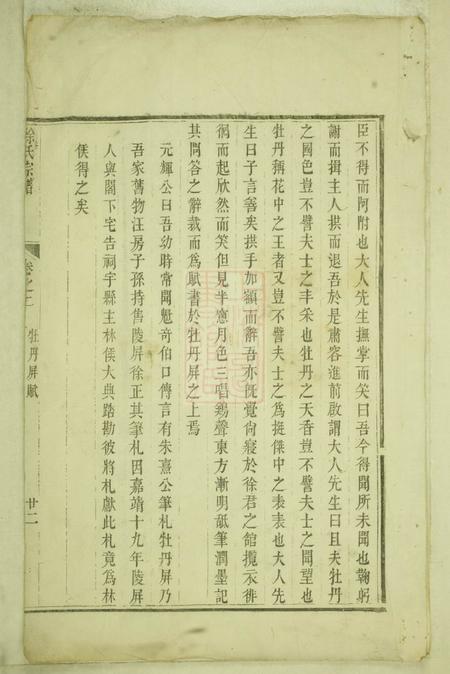 臣不得而阿附也大人先生撫掌而笑曰吾今得聞所未聞也鞠躬
謝而揖主人拱而退吾於是肅容進前啟謂大人先生曰且夫牡丹
之國色豈不譬夫士之丰采也牡丹之天香豈不譬夫士之聞望也
牡丹稱花中之王者又豈不譬夫士之為挺傑中之表表也大人先
生曰子言善矣拱手加額而辭吾亦既覺尚寢於徐君之館攬衣徘
徊而起欣然而笑但見半窻月色三唱鷄聲東方漸明舐筆潤墨記
其問答之辭裁而為賦書於牡丹屏之上焉
元輝公曰吾幼時常聞魁奇伯口傳言有朱熹公筆札牡丹屏乃
吾家舊物汪房子孫持售陵屏徐正其筆札因嘉靖十九年陵屏
人與閣下宅告祠宇縣主林侯大典踏勘彼將札獻此札竟為林
侯得之矣
徐氏宗譜
卷之二
牡丹屏賦
廿二